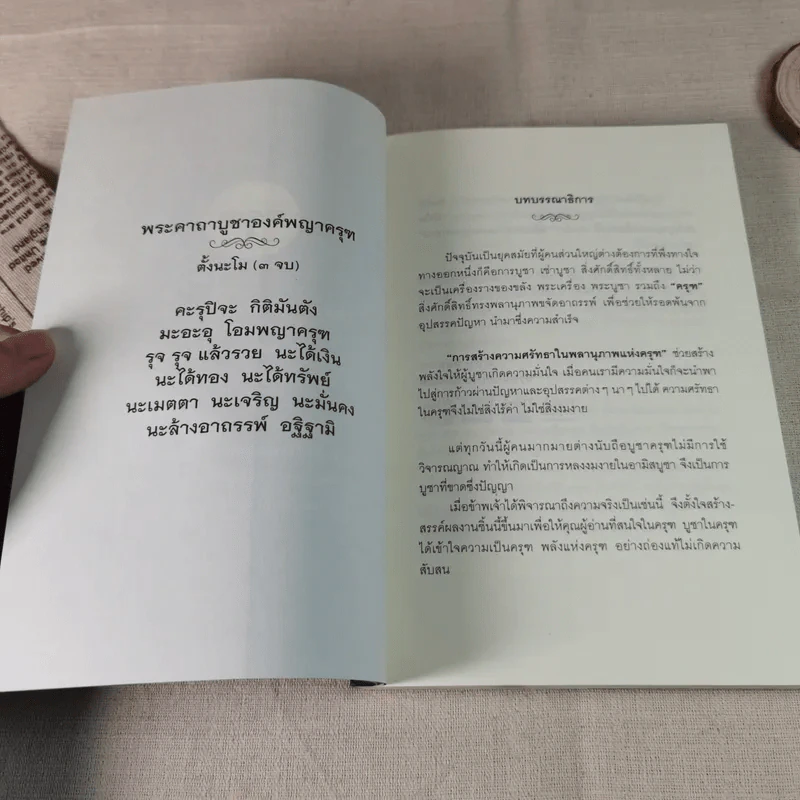 พระคาถาบูชาองค์พญาครุฑ
ตั้งนะโม (๓ จบ)
คะรุปิจะ กิติมันตัง
มะอะอุ โอมพญาครุฑ
รุจ รุจ แล้วรวย นะได้เงิน
นะได้ทอง นะได้ทรัพย์
นะเมตตา นะเจริญ นะมั่นคง
นะล้างอาถรรพ์ อฐิฐามิ
บทบรรณาธิการ
ปัจจุบันเป็นยุคสมัยที่ผู้คนส่วนใหญ่ต่างต้องการที่พึ่งทางใจ
ทางออกหนึ่งก็คือการบูชา เช่าบูชา สิ่งศักดิ์สิทธิ์ทั้งหลาย ไม่ว่า
จะเป็นเครื่องรางของขลัง พระเครื่อง พระบูชา รวมถึง "ครุฑ"
สิ่งศักดิ์สิทธิ์ทรงพลานุภาพขจัดอาถรรพ์ เพื่อช่วยให้รอดพ้นจาก
อุปสรรคปัญหา นำมาซึ่งความสำเร็จ
"การสร้างความศรัทธาในพลานุภาพแห่งครุฑ" ช่วยสร้าง
พลังใจให้ผู้บูชาเกิดความมั่นใจ เมื่อคนเรามีความมั่นใจก็จะนำพา
ไปสู่การก้าวผ่านปัญหาและอุปสรรคต่างๆ นาๆ ไปได้ ความศรัทธา
ในครุฑจึงไม่ใช่สิ่งไร้ค่า ไม่ใช่สิ่งงมงาย
แต่ทุกวันนี้ผู้คนมากมายต่างนับถือบูชาครุฑไม่มีการใช้
วิจารณญาณ ทำให้เกิดเป็นการหลงงมงายในอามิสบูชา จึงเป็นการ
บูชาที่ขาดซึ่งปัญญา
เมื่อข้าพเจ้าได้พิจารณาถึงความจริงเป็นเช่นนี้ จึงตั้งใจสร้าง-
สรรค์ผลงานชิ้นนี้ขึ้นมาเพื่อให้คุณผู้อ่านที่สนใจในครุฑ บูชาในครุฑ
ได้เข้าใจความเป็นครุฑ พลังแห่งครุฑ อย่างถ่องแท้ไม่เกิดความ
สับสน